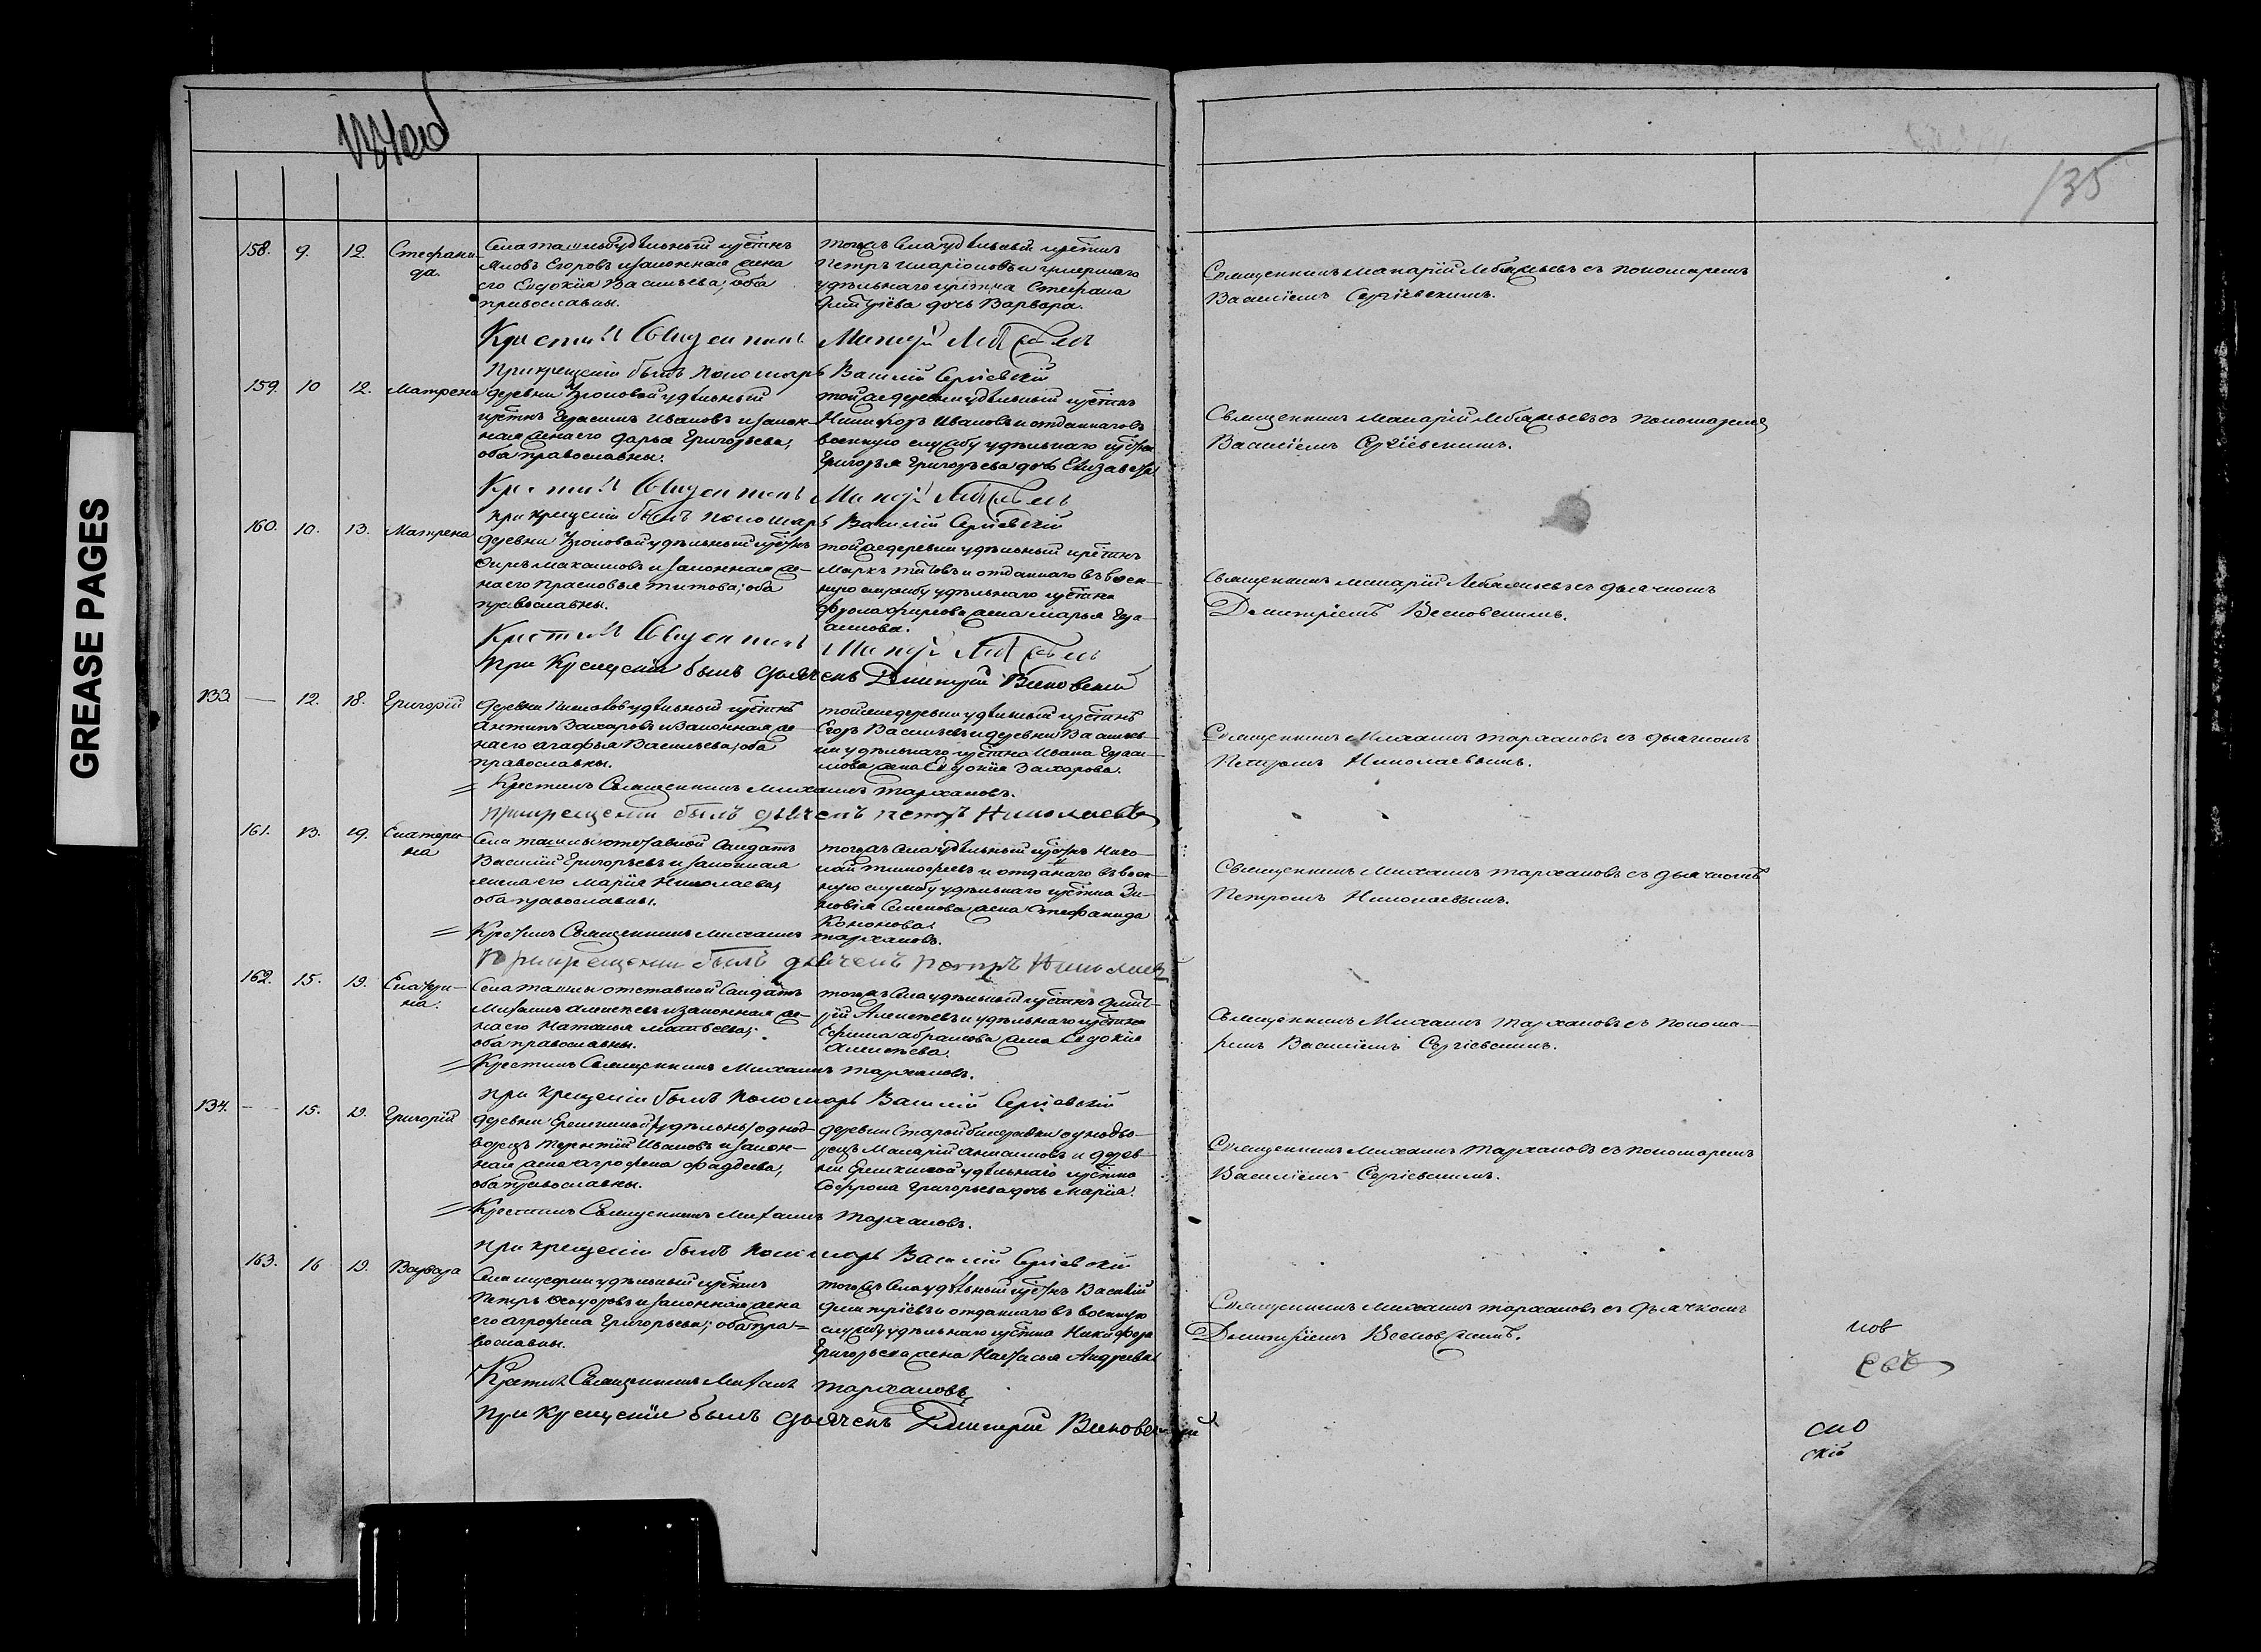 GREASE PAGES
135
158. 9. 12. Стефани-
да.
Села Ташлы удѣльный крестнъ
Яковъ Егоровъ и законная жена
его Евдокія Васильева, оба
православны.
тогожъ села удѣльный крестнъ
Петръ Иларіоновъ и умершаго
удѣльнаго крестна Стефана
Дмитріева дочь Варвара.
Священникъ Макарій Лебяжьевъ съ пономаремъ
Василіемъ Сергіевскимъ.
Крестилъ Священникъ Макарій
При крещеніи былъ Пономарь Василій Сергіевскій
159. 10 12. Матрена
деревни удѣльный
крестнъ Герасимъ Ивановъ и закон-
ная жена его Дарья Григорьева,
оба православны.
той же деревни удѣльный крестнъ
Никифоръ Ивановъ и отданнаго въ
военную службу удѣльнаго крестна
Григорья Григорьева дочь Елизавета
Священникъ Макарій Лебяжьевъ съ пономаремъ
Василіемъ Сергіевскимъ.
Крестилъ Священникъ Макарій
При крещеніи былъ Пономарь Василій Сергіевскій
160. 10. 13. Матрена
деревни удѣльный крестнъ
и законная же-
на его Прасковья Титова, оба
православны.
той же деревни удѣльный крестнъ
Маркъ Титовъ и отданнаго въ воен-
ную службу удѣльнаго крестна
Фрола жена Марья Гера-
симова.
Священникъ Макарій Лебяжьевъ съ дьячкомъ
Димитріемъ
Крестилъ Священникъ Макарій
При Крещеніи былъ дьячекъ Димитрій
133. — 12. 18. Григорій
деревни удѣльный крестнъ
Антипъ Захаровъ и законная же-
на его Агафья Васильева, оба
православны.
той же деревни удѣльный крестнъ
Егоръ Васильевъ и деревни Васильев-
ки удѣльнаго крестна Ивана Гераси-
мова жена Евдокія Захарова.
Священникъ Михаилъ Тархановъ съ дьячкомъ
Петромъ Николаевымъ.
= Крестилъ Священникъ Михаилъ Тархановъ.
При крещеніи былъ дьячекъ Петръ Николаевъ
161. 13. 19. Екатери-
на
Села Ташлы отставной Солдатъ
Василій Григорьевъ и законная
жена его Марія Николаева,
оба православны.
тогожъ села удѣльный крестнъ Нико-
лай Тимофеевъ и отданаго въ воен-
ную службу удѣльнаго крестна Зи-
новія Семенова жена Стефанида
Кононова.
Священникъ Михаилъ Тархановъ съ дьячкомъ
Петромъ Николаевымъ.
= Крестилъ Священникъ Михаилъ Тархановъ.
При крещеніи былъ дьячекъ Петръ Николаевъ
162. 15. 19. Екатери-
на.
Села Ташлы отставной Солдатъ
Михаилъ Алексѣевъ и законная же-
на его Наталья Матвѣева;
оба православны.
тогожъ села удѣльный крестнъ Дмит-
рій Алексѣевъ и удѣльнаго крестна
Ефима Абрамова жена Евдокія
Алексѣева.
Священникъ Михаилъ Тархановъ съ понома-
ремъ Василіемъ Сергіевскимъ.
= Крестилъ Священникъ Михаилъ Тархановъ.
При крещеніи былъ Пономарь Василій Сергіевскій
134. — 15. 19. Григорій
деревни Ерешкиной /удѣльны/ однод-
ворецъ Терентій Ивановъ и закон-
ная жена Агрофена Фадѣева,
оба православны.
деревни Старой однодво-
рецъ Макарій и дерев-
ни Ерешкиной удѣльнаго крестна
Софрона Григорьева дочь Марія.
Священникъ Михаилъ Тархановъ съ пономаремъ
Василіемъ Сергіевскимъ.
= Крестилъ Священникъ Михаилъ Тархановъ.
При крещеніи былъ Пономарь Василій Сергіевскій
163. 16 19. Варвара
Села удѣльный крестнъ
Петръ Ѳедоровъ и законная жена
его Агрофена Григорьева; оба пра=
вославны.
тогожъ села удѣльный крестнъ Василій
Дмитріевъ и отданнаго въ военную
службу удѣльнаго крестна Никифора
Григорьева жена Настасья Андреева
Священникъ Михаилъ Тархановъ съ дьячкомъ
Димитріемъ
Крестилъ Священникъ Михаилъ Тархановъ
При Крещеніи былъ дьячекъ Димитрій
нов
ско
скій